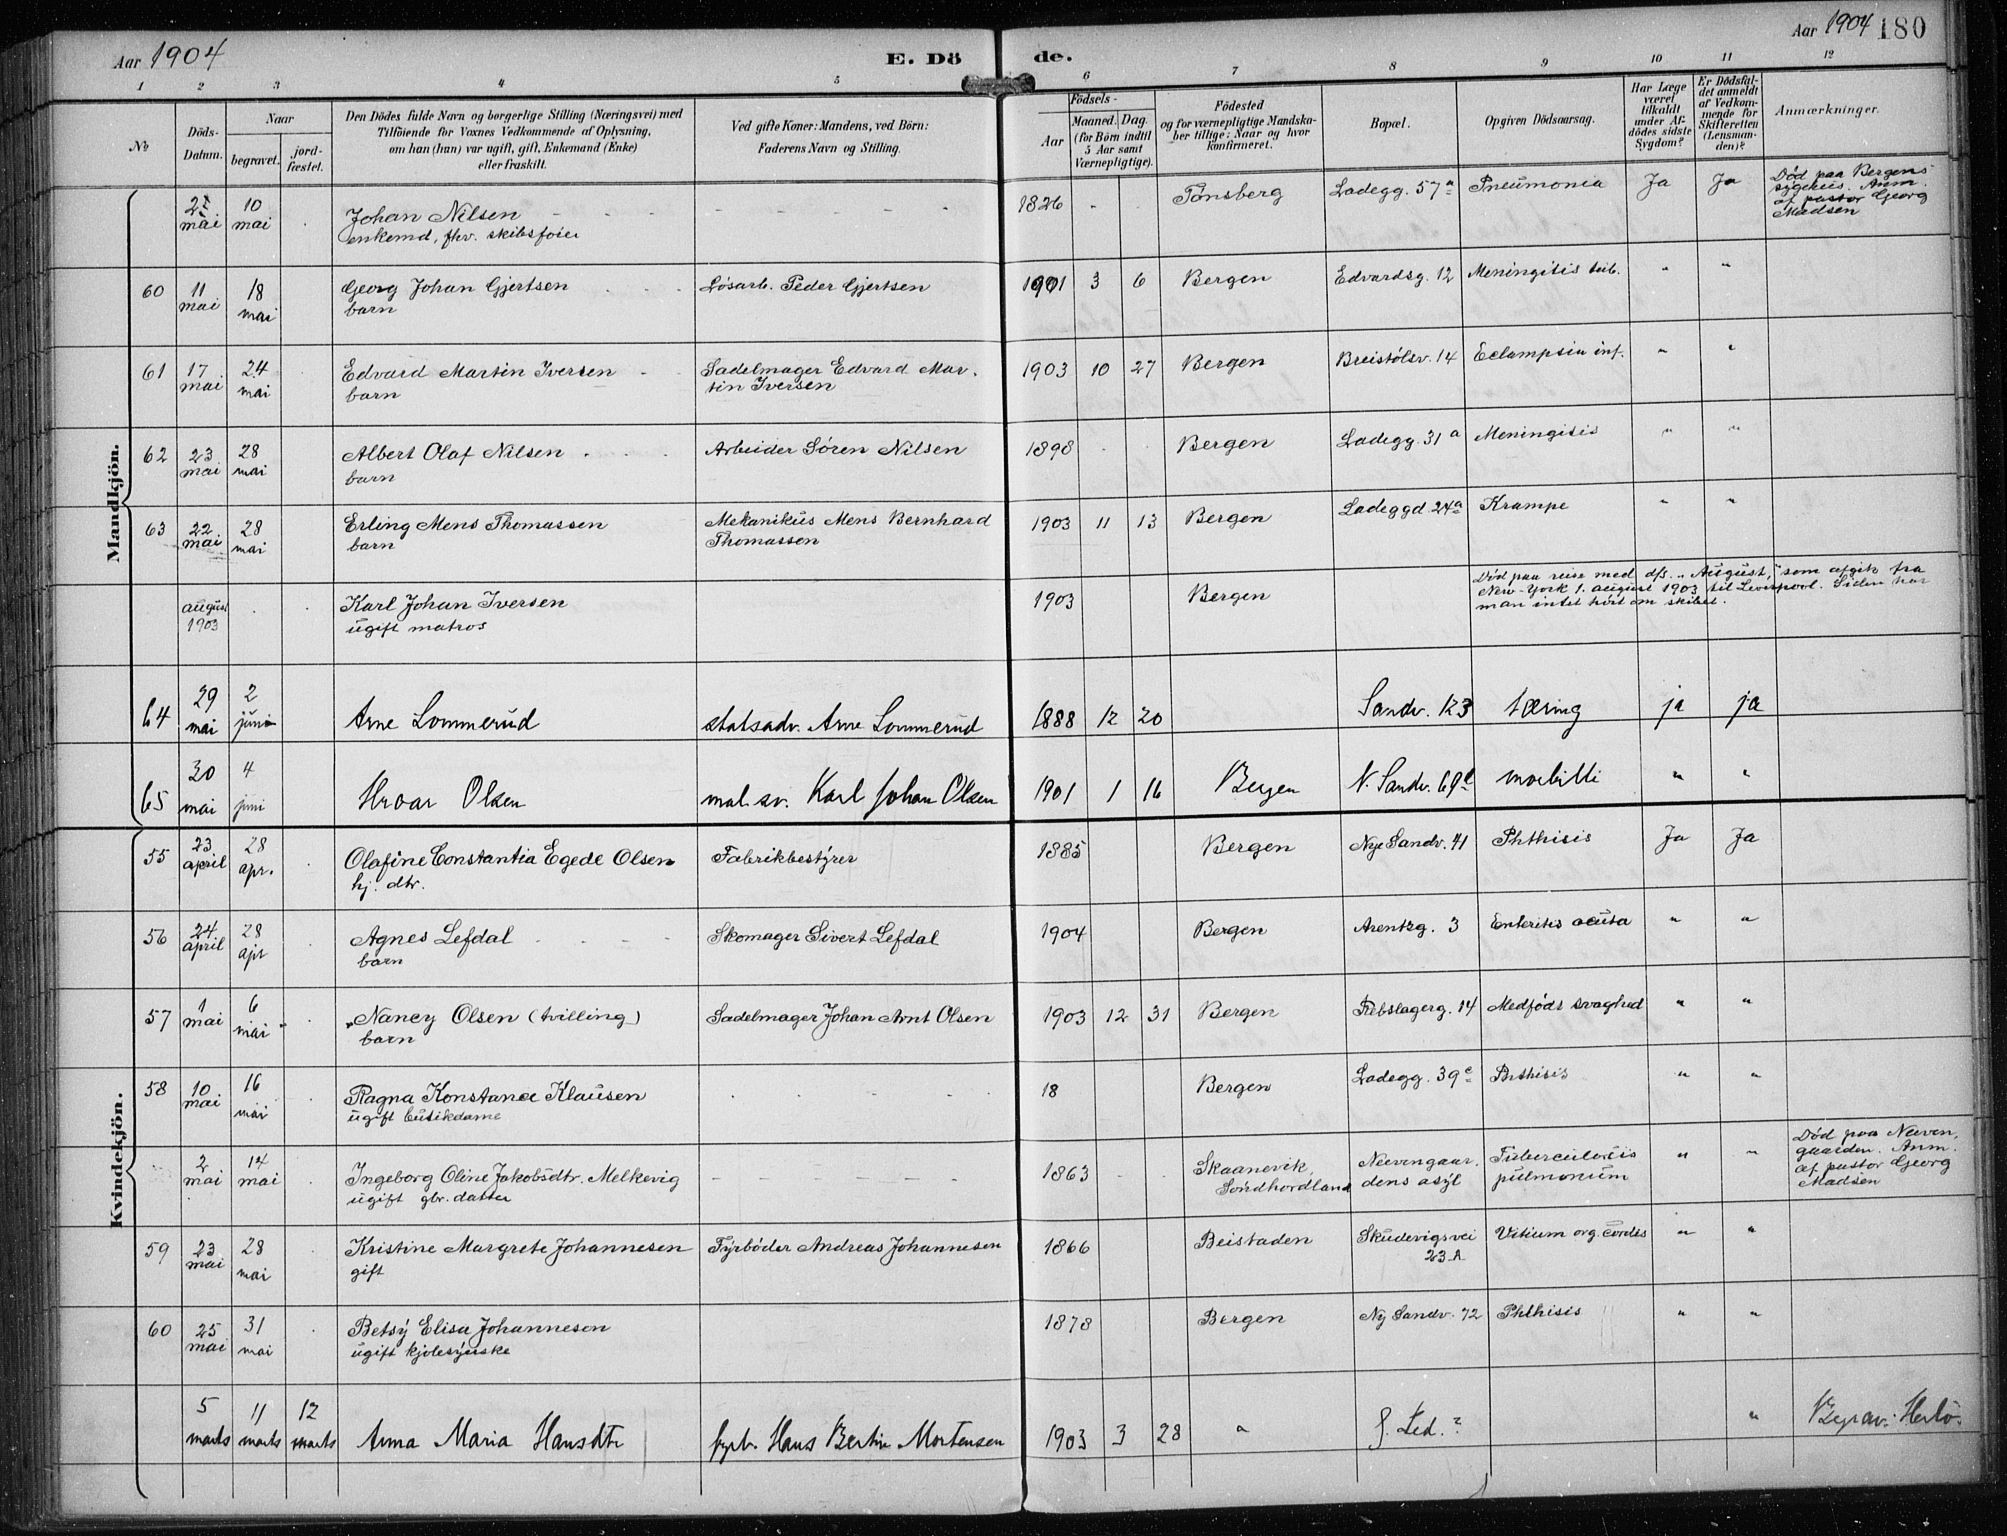 Aar 1904
E. Dö
de.
Aar 1904
180
1 2 3 4 5 6 7 8 9 10 11 12
No
Döds-
Datum.
Naar
begravet.
jord-
fæstet.
Den Dödes fulde Navn og borgerlige Stilling (Næringsvei) med
Tilföiende for Voxnes Vedkommende af Oplysning,
om han (hun) var ugift, gift, Enkemand (Enke)
eller fraskilt.
Ved gifte Koner: Mandens, ved Börn:
Faderens Navn og Stilling.
Födsels-
Aar
Maaned. Dag.
(for Börn indtil
5 Aar samt
Værnepligtige).
Födested
og for værnepligtige Mandska-
ber tillige: Naar og hvor
konfirmeret.
Bopæl.
Opgiven Dödsaarsag.
Har Læge
været
tilkaldt
under Af-
dödes sidste
Sygdom?
Er Dödsfal-
det anmeldt
af Vedkom-
mende for
Skifteretten
(Lensman-
den)?
Anmærkninger.
Mandkjön.
mai
10
mai
Johan Nilsen
enkemd, fhv. skibsfører
1826
Tønsberg
Ladegg. 57a
Pneumonia
Ja
Ja
Død paa Bergens
sygehus. Anm.
af pastor Georg
Madsen
60
11
mai
18
mai
Georg Johan Gjertsen
barn
Løsarb. Peder Gjertsen
1901 3 6
Bergen
Edvardsg. 12
Meningitis tub.
"
"
61
17
mai
24
mai
Edvard Martin Iversen
barn
Sadelmager Edvard Mar-
tin Iversen
1903 10 27
Bergen
Breistølsv. 14
Eclampsia inf.
"
"
62
23
mai
28
mai
Albert Olaf Nilsen
barn
Arbeider Søren Nilsen
1898
Bergen
Ladegg. 31a
Meningitis
"
"
63
22
mai
28
mai
Erling Mens Thomassen
barn
Mekanikus Mens Bernhard
Thomassen
1903 11 13
Bergen
Ladeggd. 24a
Krampe
"
"
august
1903
Karl Johan Iversen
ugift matros
1903
Bergen
Død paa reise med dfs. "August," som afgik fra
New-York 1. august 1903 til Liverpool. Siden har
man intet hørt om skibet.
64
29
mai
2
juni
Arne Lommerud
statsadv. Arne Lommerud
1888 12 20
Sandv. 123
tæring
ja
ja
65
30
mai
4
juni
Hroar Olsen
mal.sv. Karl Johan Olsen
1901 1 16
Bergen
N. Sandv. 69
morbilli
"
"
Kvindekjön.
55
23
april
28
apr.
Olafine Constantia Egede Olsen
hj. dtr.
Fabrikbestyrer
1885
Bergen
Nye Sandv. 41
Phthisis
Ja
Ja
56
24
april
28
apr
Agnes Lefdal
barn
Skomager Sivert Lefdal
1904
Bergen
Arentzg. 3
Enteritis acuta
"
"
57
1
mai
6
mai
Nancy Olsen (tvilling)
barn
Sadelmager Johan Arnt Olsen
1903 12 31
Bergen
Rebslagerg. 14
Medfødt svaghed
"
"
58
10
mai
16
mai
Ragna Konstance Klausen
ugift butikdame
18
Bergen
Ladegg. 39c
Phthisis
"
"
2
mai
14
mai
Ingeborg Oline Jakobsdtr. Melkevig
ugift gbr. datter
1863
Skaanevik,
Søndhordland
Neevengaar-
dens asyl
Tuberculosis
pulmonum
"
"
Død paa Neeven-
gaarden. Anm.
af pastor Georg
Madsen
59
23
mai
28
mai
Kristine Margrete Johannesen
gift
Fyrbøder Andreas Johannesen
1866
Beistaden
Skudevigsvei
23 A
Vitium org. cordis
"
"
60
25
mai
31
mai
Betsy Elisa Johannesen
ugift kjolesyerske
1878
Bergen
Ny Sandv. 72
Phthisis
"
"
5
marts
11
marts
12
marts
Anna Maria Hansdtr
fyrb. Hans Bertin Mortensen
1903 3 28
"
"
Begrav: Herlö.